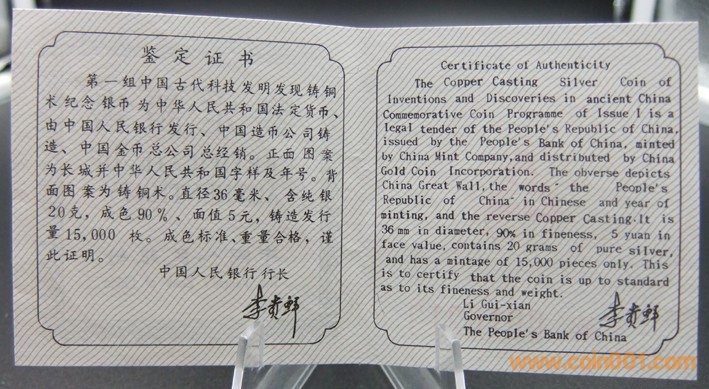 鉴定证书
第一组中国古代科技发明发现铸铜
术纪念银币为中华人民共和国法定货币、
由中国人民银行发行、中国造币公司铸
造、中国金币总公司总经销。正面图案
为长城并中华人民共和国字样及年号。背
面图案为铸铜术。直径36毫米、含纯银
20克,成色90%、面值5元,铸造发行
量15,000枚。成色标准、重量合格,谨
此证明。
中国人民银行行长
李贵鲜
Certificate of Authenticity
The Copper Casting Silver Coin of
Inventions and Discoveries in ancient China
Commemorative Coin Programme of Issue I is a
legal tender of the People's Republic of China,
issued by the People's Bank of China, minted
by China Mint Company,and distributed by China
Gold Coin Incorporation. The obverse depicts
China Great Wall,the words " the People's
Republic of China" in Chinese and year of
minting, and the reverse Copper Casting.It is
36 mm in diameter, 90% in fineness, 5 yuan in
face value, contains 20 grams of pure silver,
and has a mintage of 15,000 pieces only. This
is to certify that the coin is up to standard
as to its fineness and weight.
Li Gui-xian
Governor
李贵鲜
The People's Bank of China
www.coin001.com